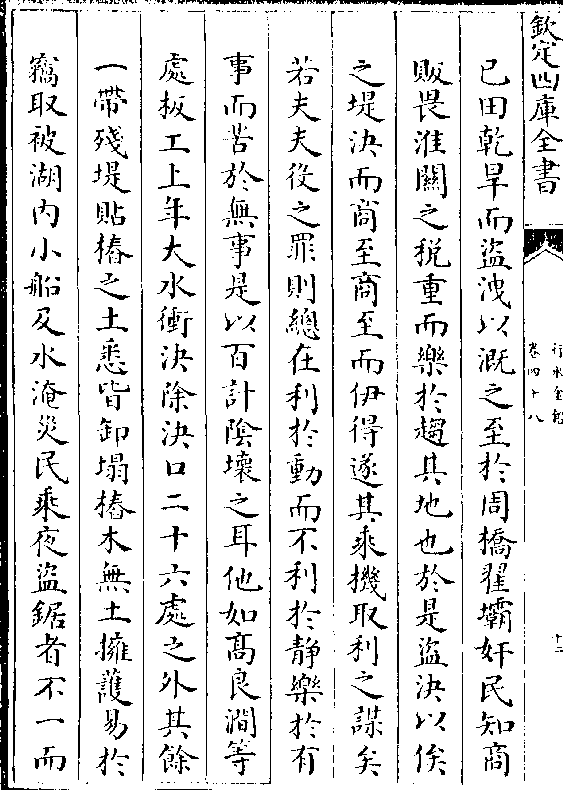 欽定四庫全書
行水金鑑
卷四十八
十三
已田乾旱而盜洩以溉之至於周橋翟壩奸民知商
販畏淮關之稅重而樂於趨其地也於是盜決以俟
之堤決而商至商至而伊得遂其乘機取利之謀矣
若夫夫役之罪則總在利於動而不利於靜樂於有
事而苦於無事是以百計陰壞之耳他如高良澗等
處板工上年大水衝決除決口二十六處之外其餘
一帶殘堤貼樁之土悉皆卸塌樁木無土擁護易於
竊取被湖內小船及水淹災民乘夜盜鋸者不一而